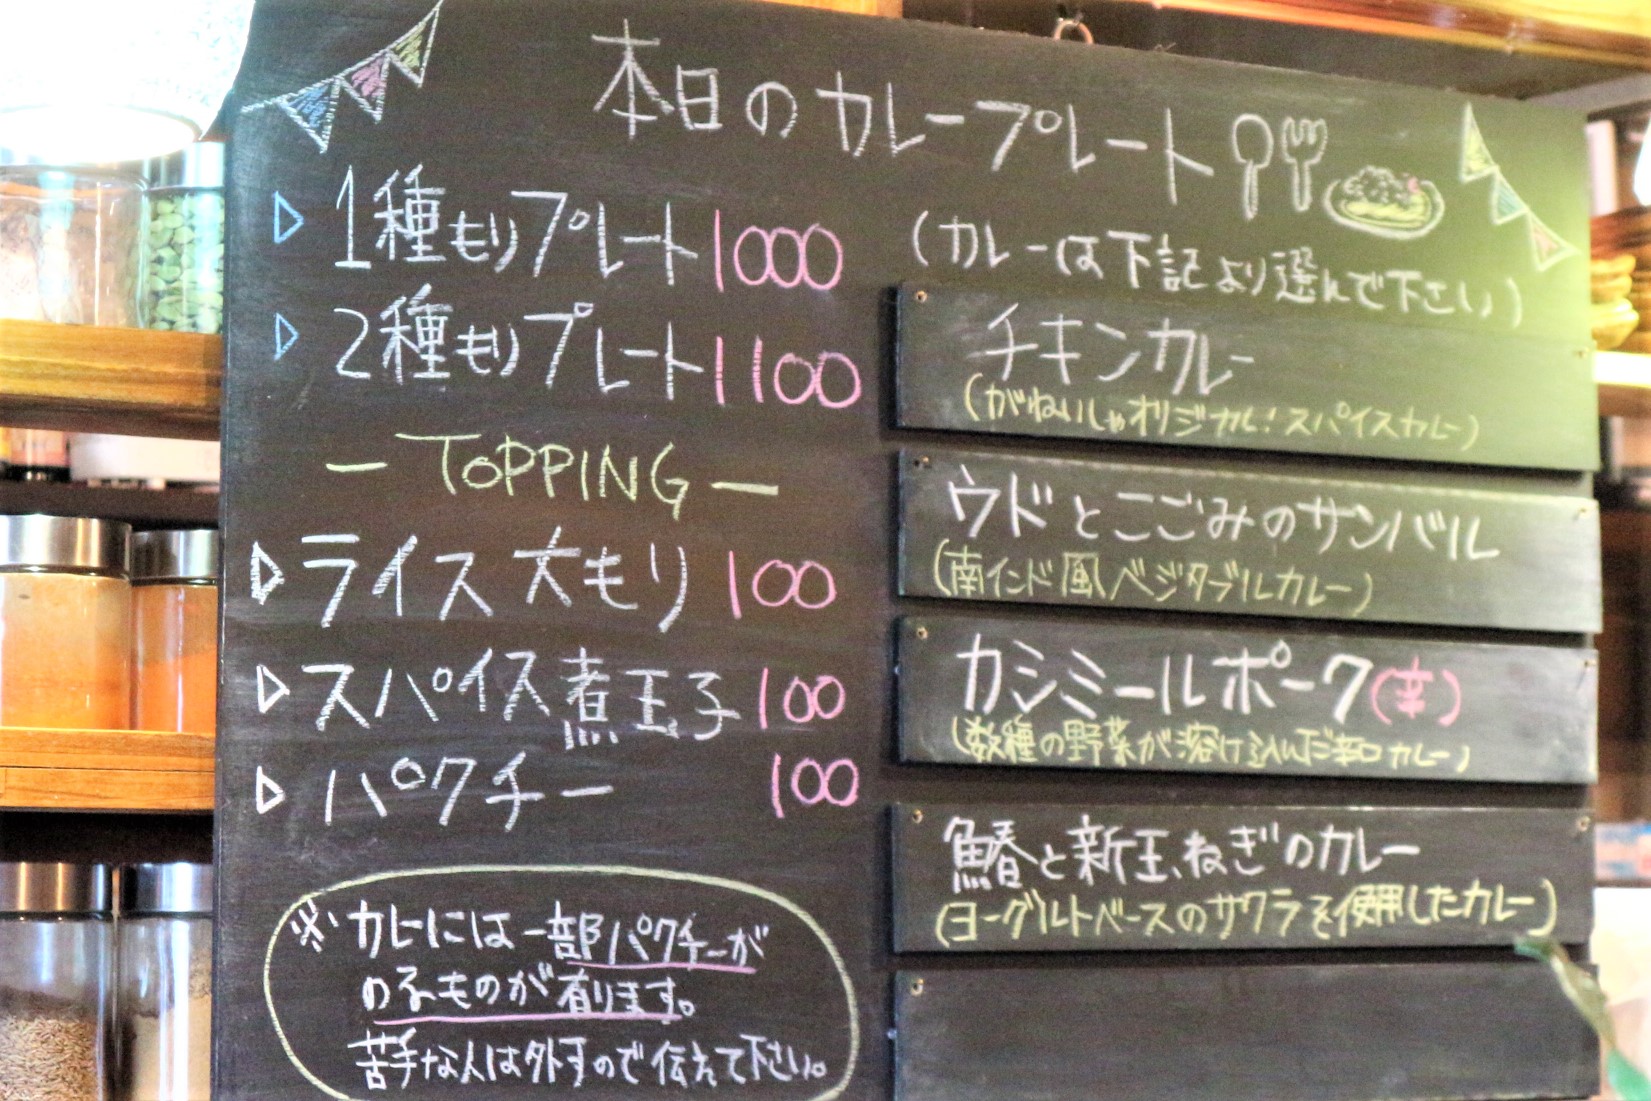 本日のカレープレート
▷ 1種もりプレート 1000
▷ 2種もりプレート 1100
— TOPPING —
▷ ライス大もり 100
▷ スパイス煮玉子 100
▷ パクチー 100
※カレーには一部パクチーが
のるものが有ります。
苦手な人は外すので伝えて下さい。
(カレーは下記より選んで下さい)
チキンカレー
(がねいしゃオリジナル!スパイスカレー)
ウドとこごみのサンバル
(南インド風ベジタブルカレー)
カシミールポーク(辛)
(数種の野菜が溶け込んだ辛口カレー)
鰆と新玉ねぎのカレー
(ヨーグルトベースのサワラを使用したカレー)